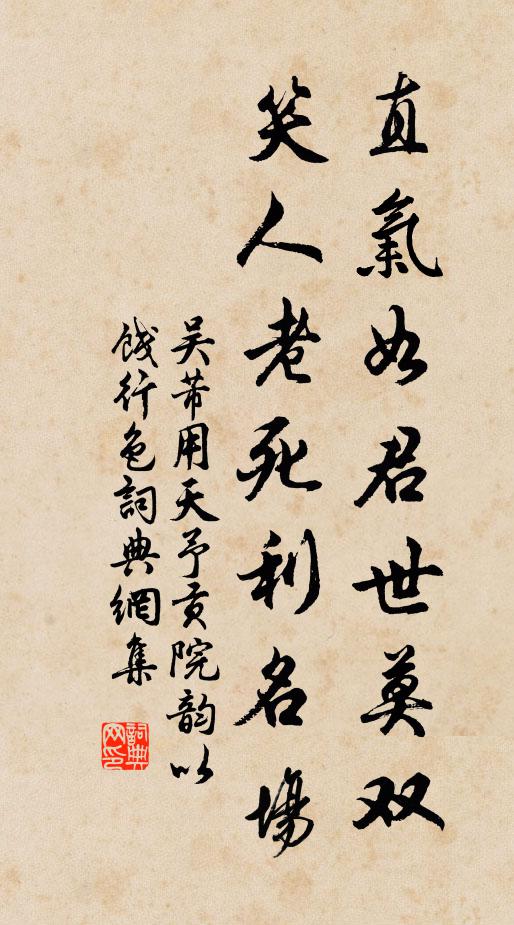 直氣如君世莫双
笑人老死利名場
吴芾用天予貢院韵以
餞行色詞典網集
詞典网印